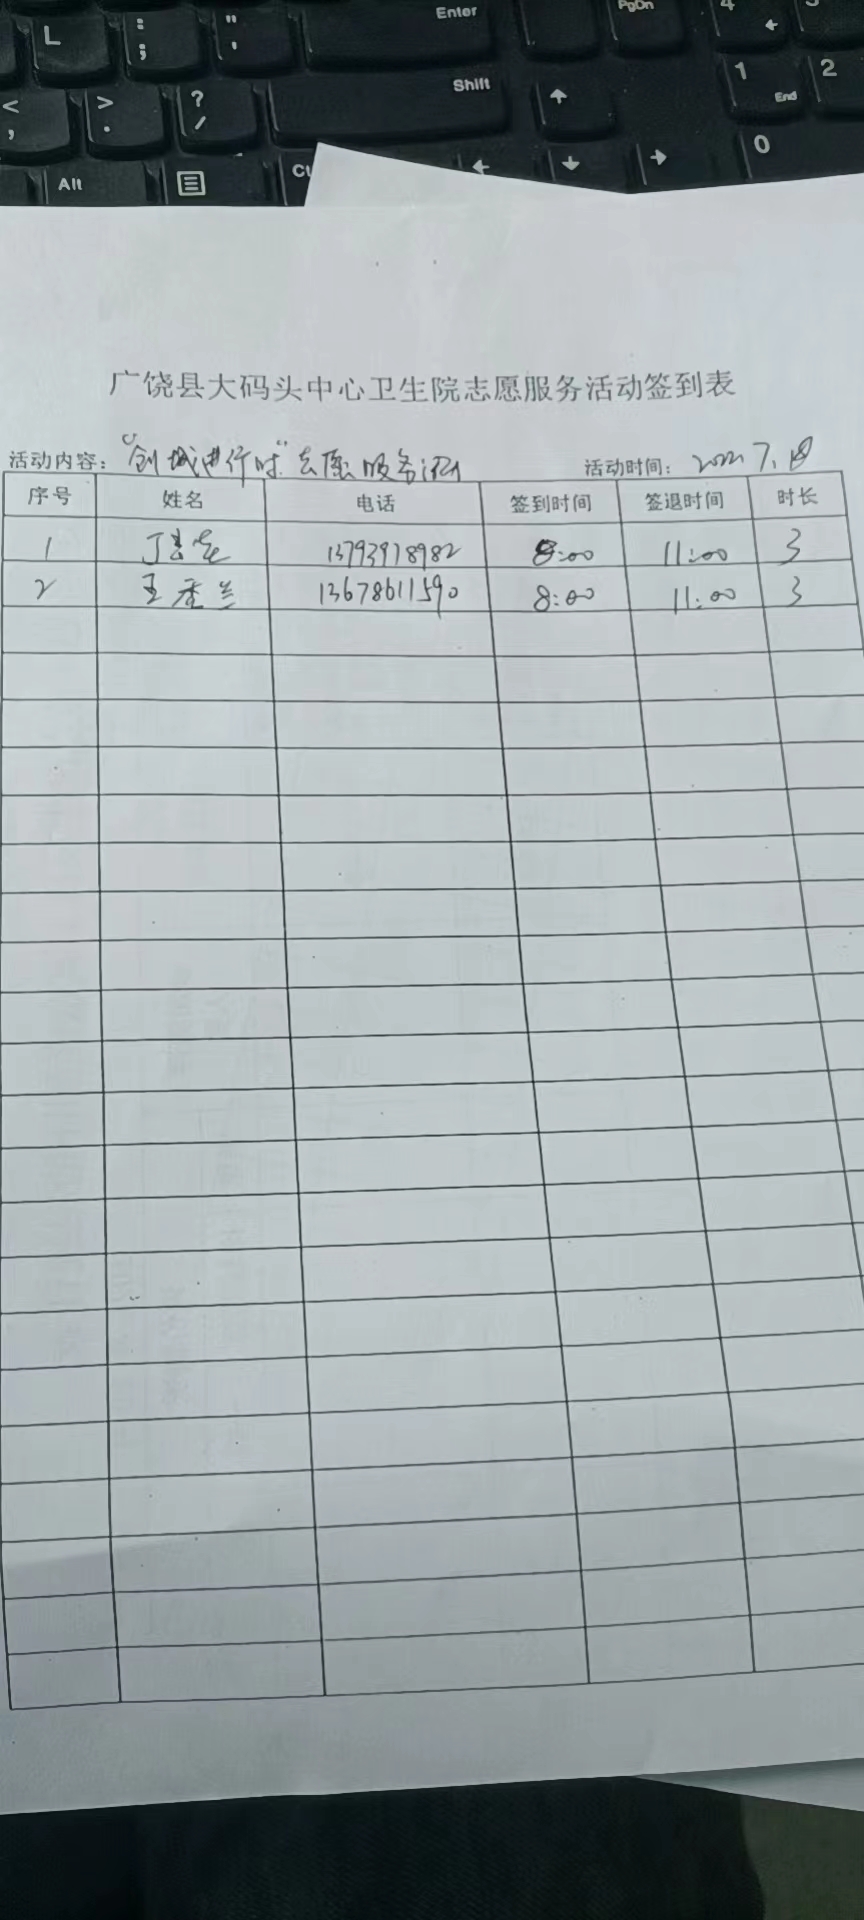 L : ; " ' Enter PgDn 4
< , > . ? / Shift 1 End 2
Alt 0
广饶县大码头中心卫生院志愿服务活动签到表
活动内容："创城进行时"志愿服务活动 活动时间：2022.7.18
序号 姓名 电话 签到时间 签退时间 时长
1 丁 13793978982 8:00 11:00 3
2 王香兰 13678611590 8:00 11:00 3